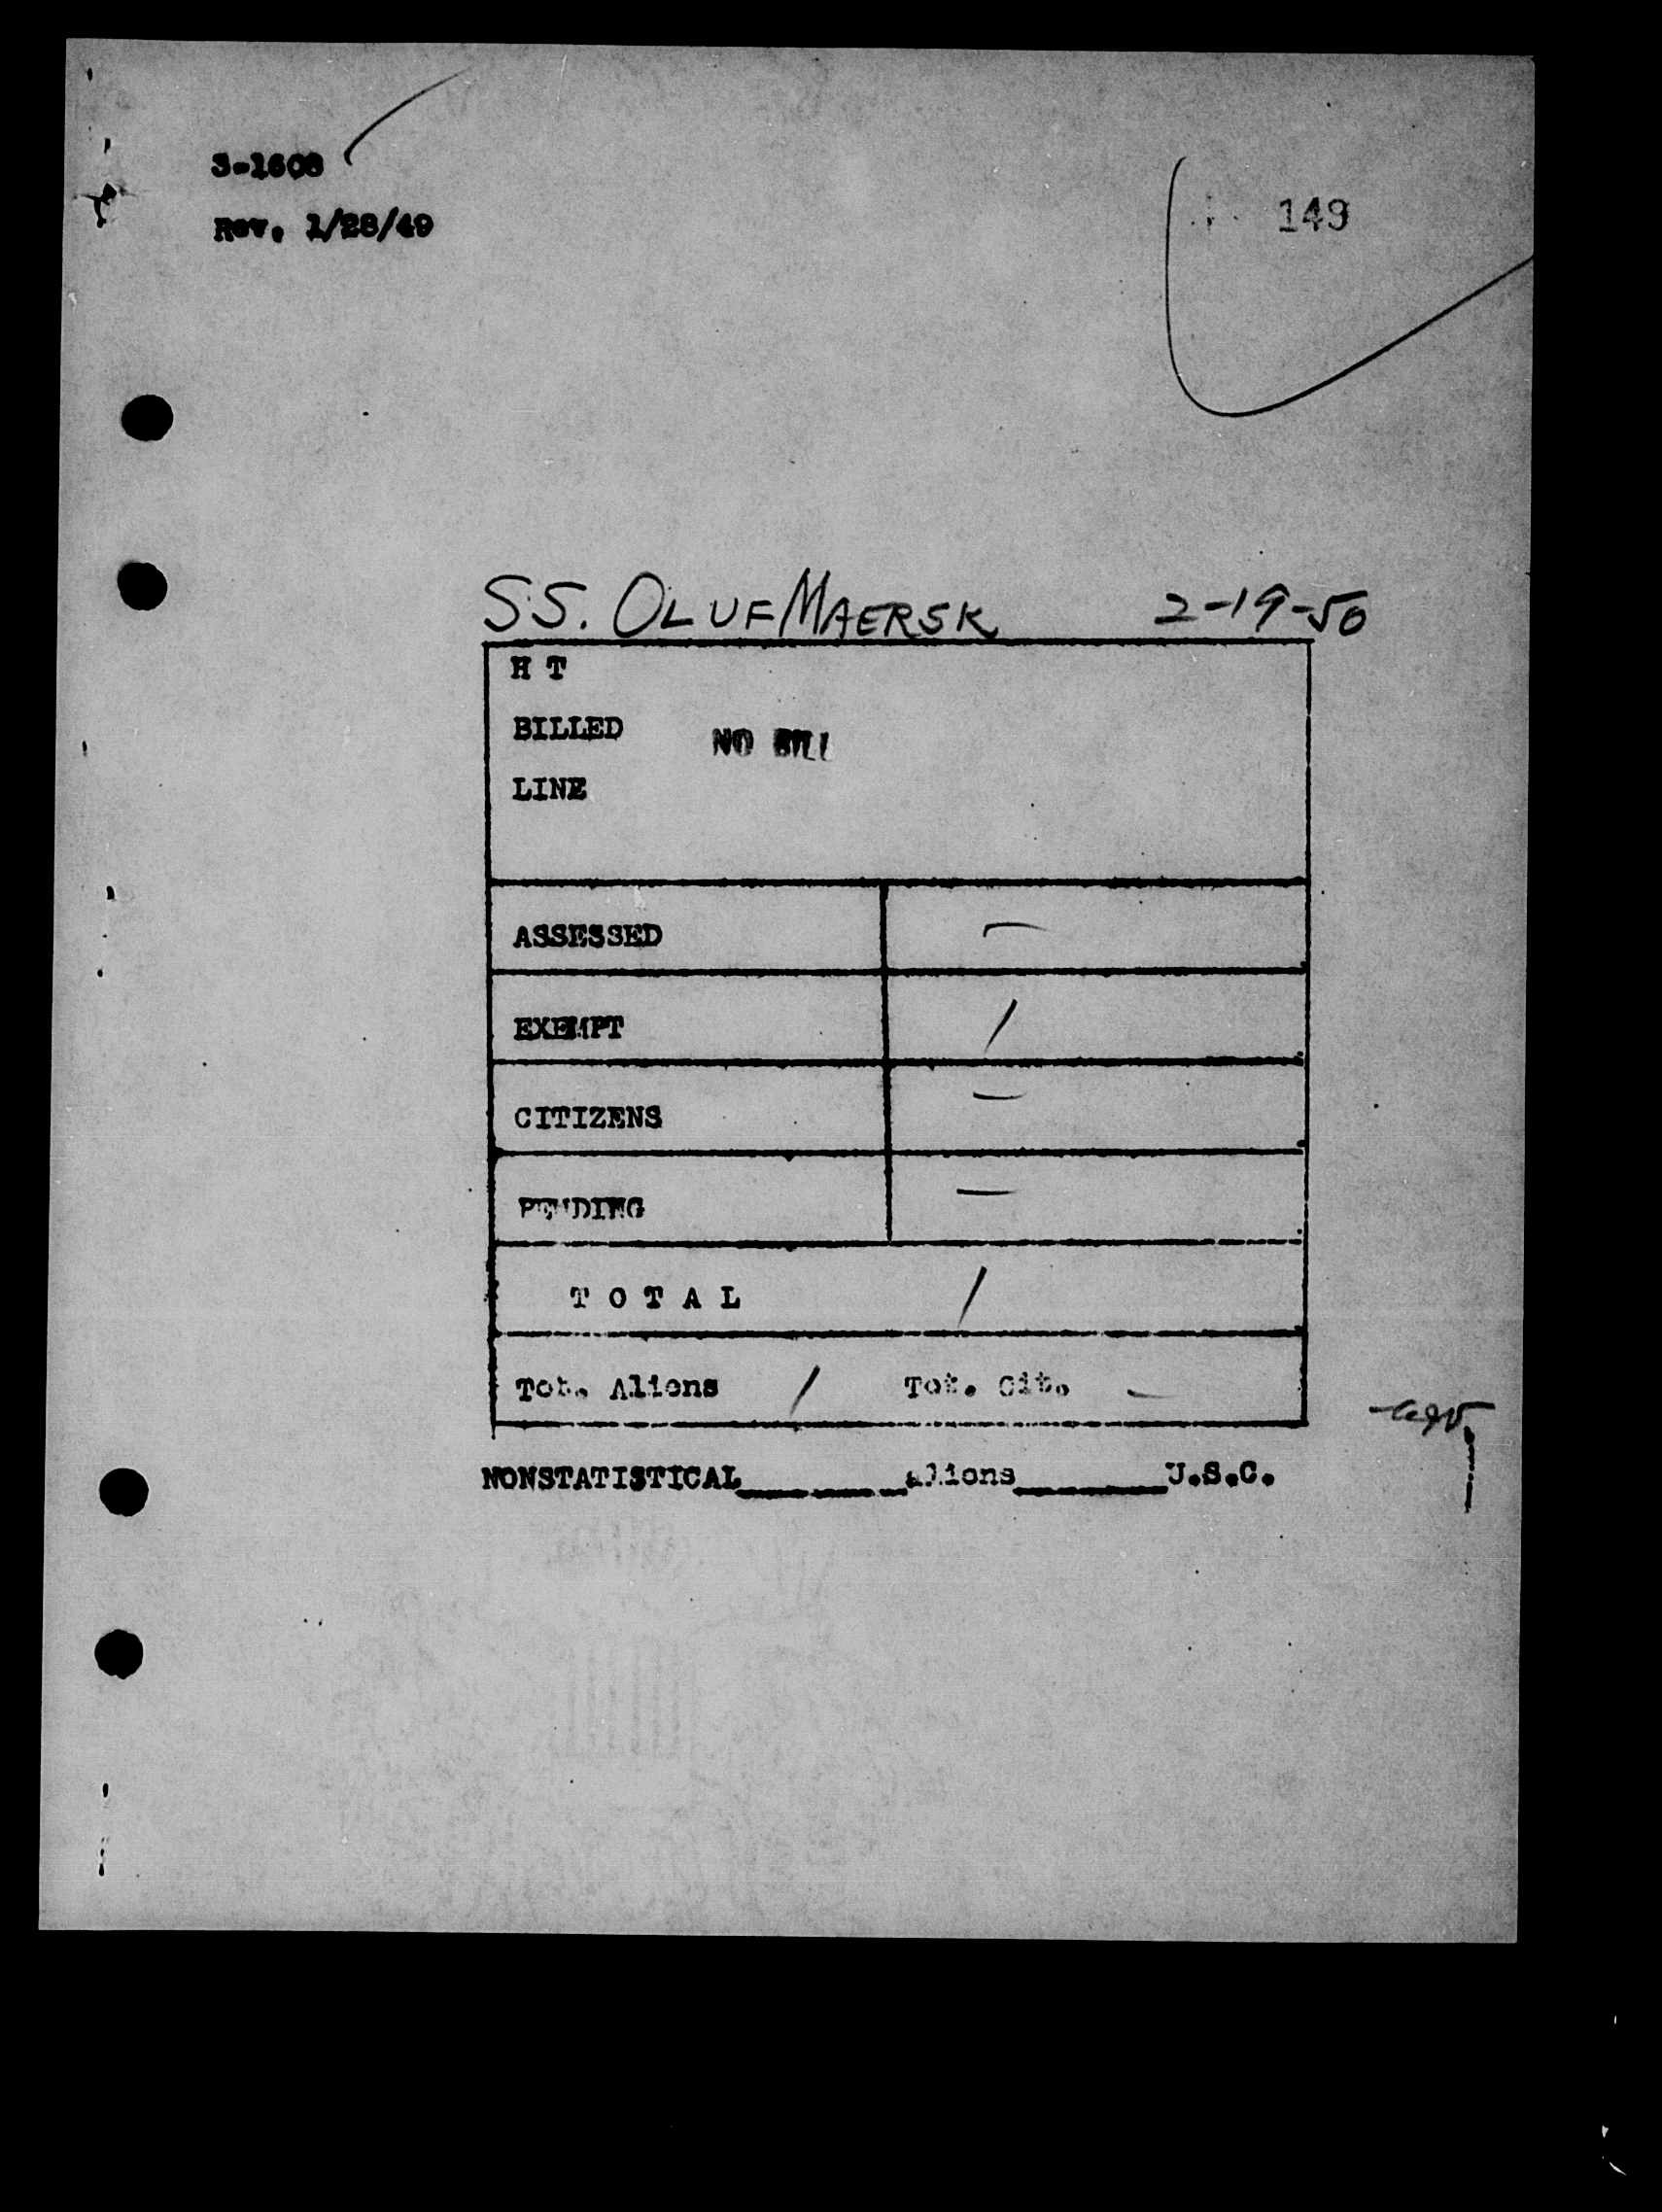 S-1608
Rev. 1/28/49
149
SS. OLUF MAERSK 2-19-50
H T
BILLED NO BILL
LINE
ASSESSED —
EXEMPT /
CITIZENS —
PENDING —
T O T A L /
Tot. Aliens / Tot. Cit. —
NONSTATISTICAL______aliens______U.S.C.